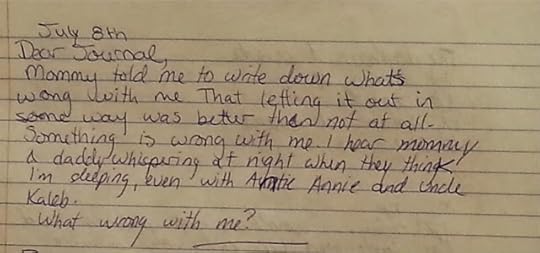 July 8th
Dear Journal,
Mommy told me to write down what's
wrong with me That letting it out in
some way was better than not at all.
Something is wrong with me. I hear mommy
& daddy whispering at night when they think
I'm sleeping, even with Antic Annie and Uncle
Kaleb.
What wrong with me?